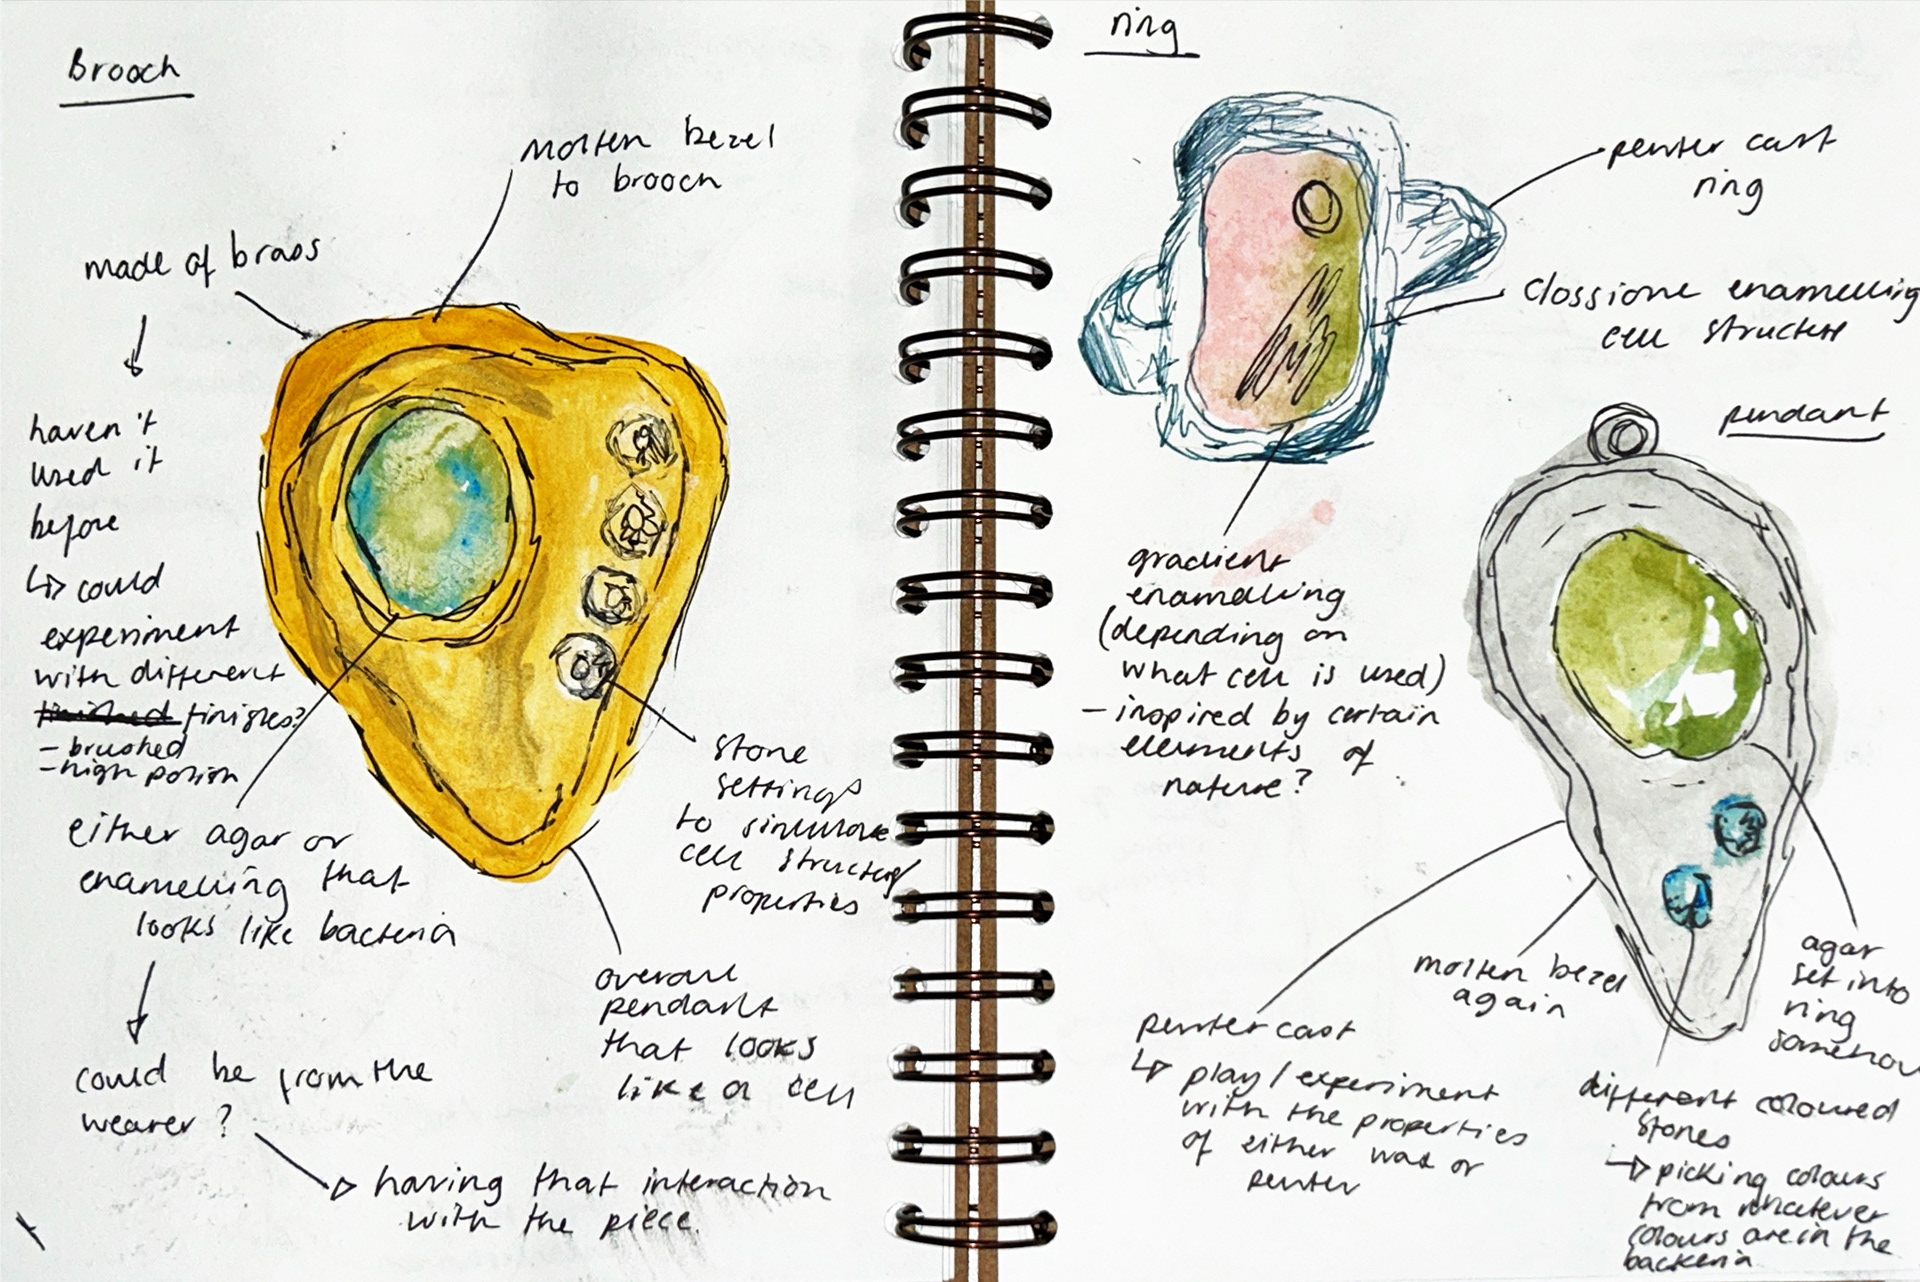 Brooch
molten bezel
to brooch
made of brass
haven't
used it
before
↳ could
experiment
with different
finished finishes?
- brushed
- high polish
either agar or
enamelling that
looks like bacteria
could be from the
wearer?
having that interaction
with the piece.
stone
settings
to simulate
cell structures/
properties
overall
pendant
that looks
like a cell
ring
pewter cast
ring
clossione enamelling
cell structure
gradient
enamelling
(depending on
what cell is used)
- inspired by certain
elements of
nature?
pendant
agar
set into
ring
somehow
molten bezel
again
pewter cast
↳ play/experiment
with the properties
of either wax or
pewter
different coloured
stones
→ picking colours
from whatever
colours are in the
bacteria